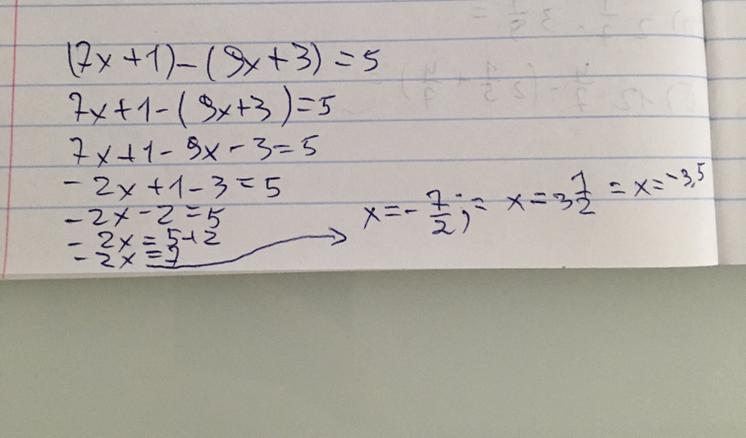 (7x+1)-(9x+3)=5
7x+1-(9x+3)=5
7x+1-9x-3=5
-2x+1-3=5
-2x-2=5
-2x=5+2
-2x=7
x=-7/2;= x=3 1/2 = x=-3,5